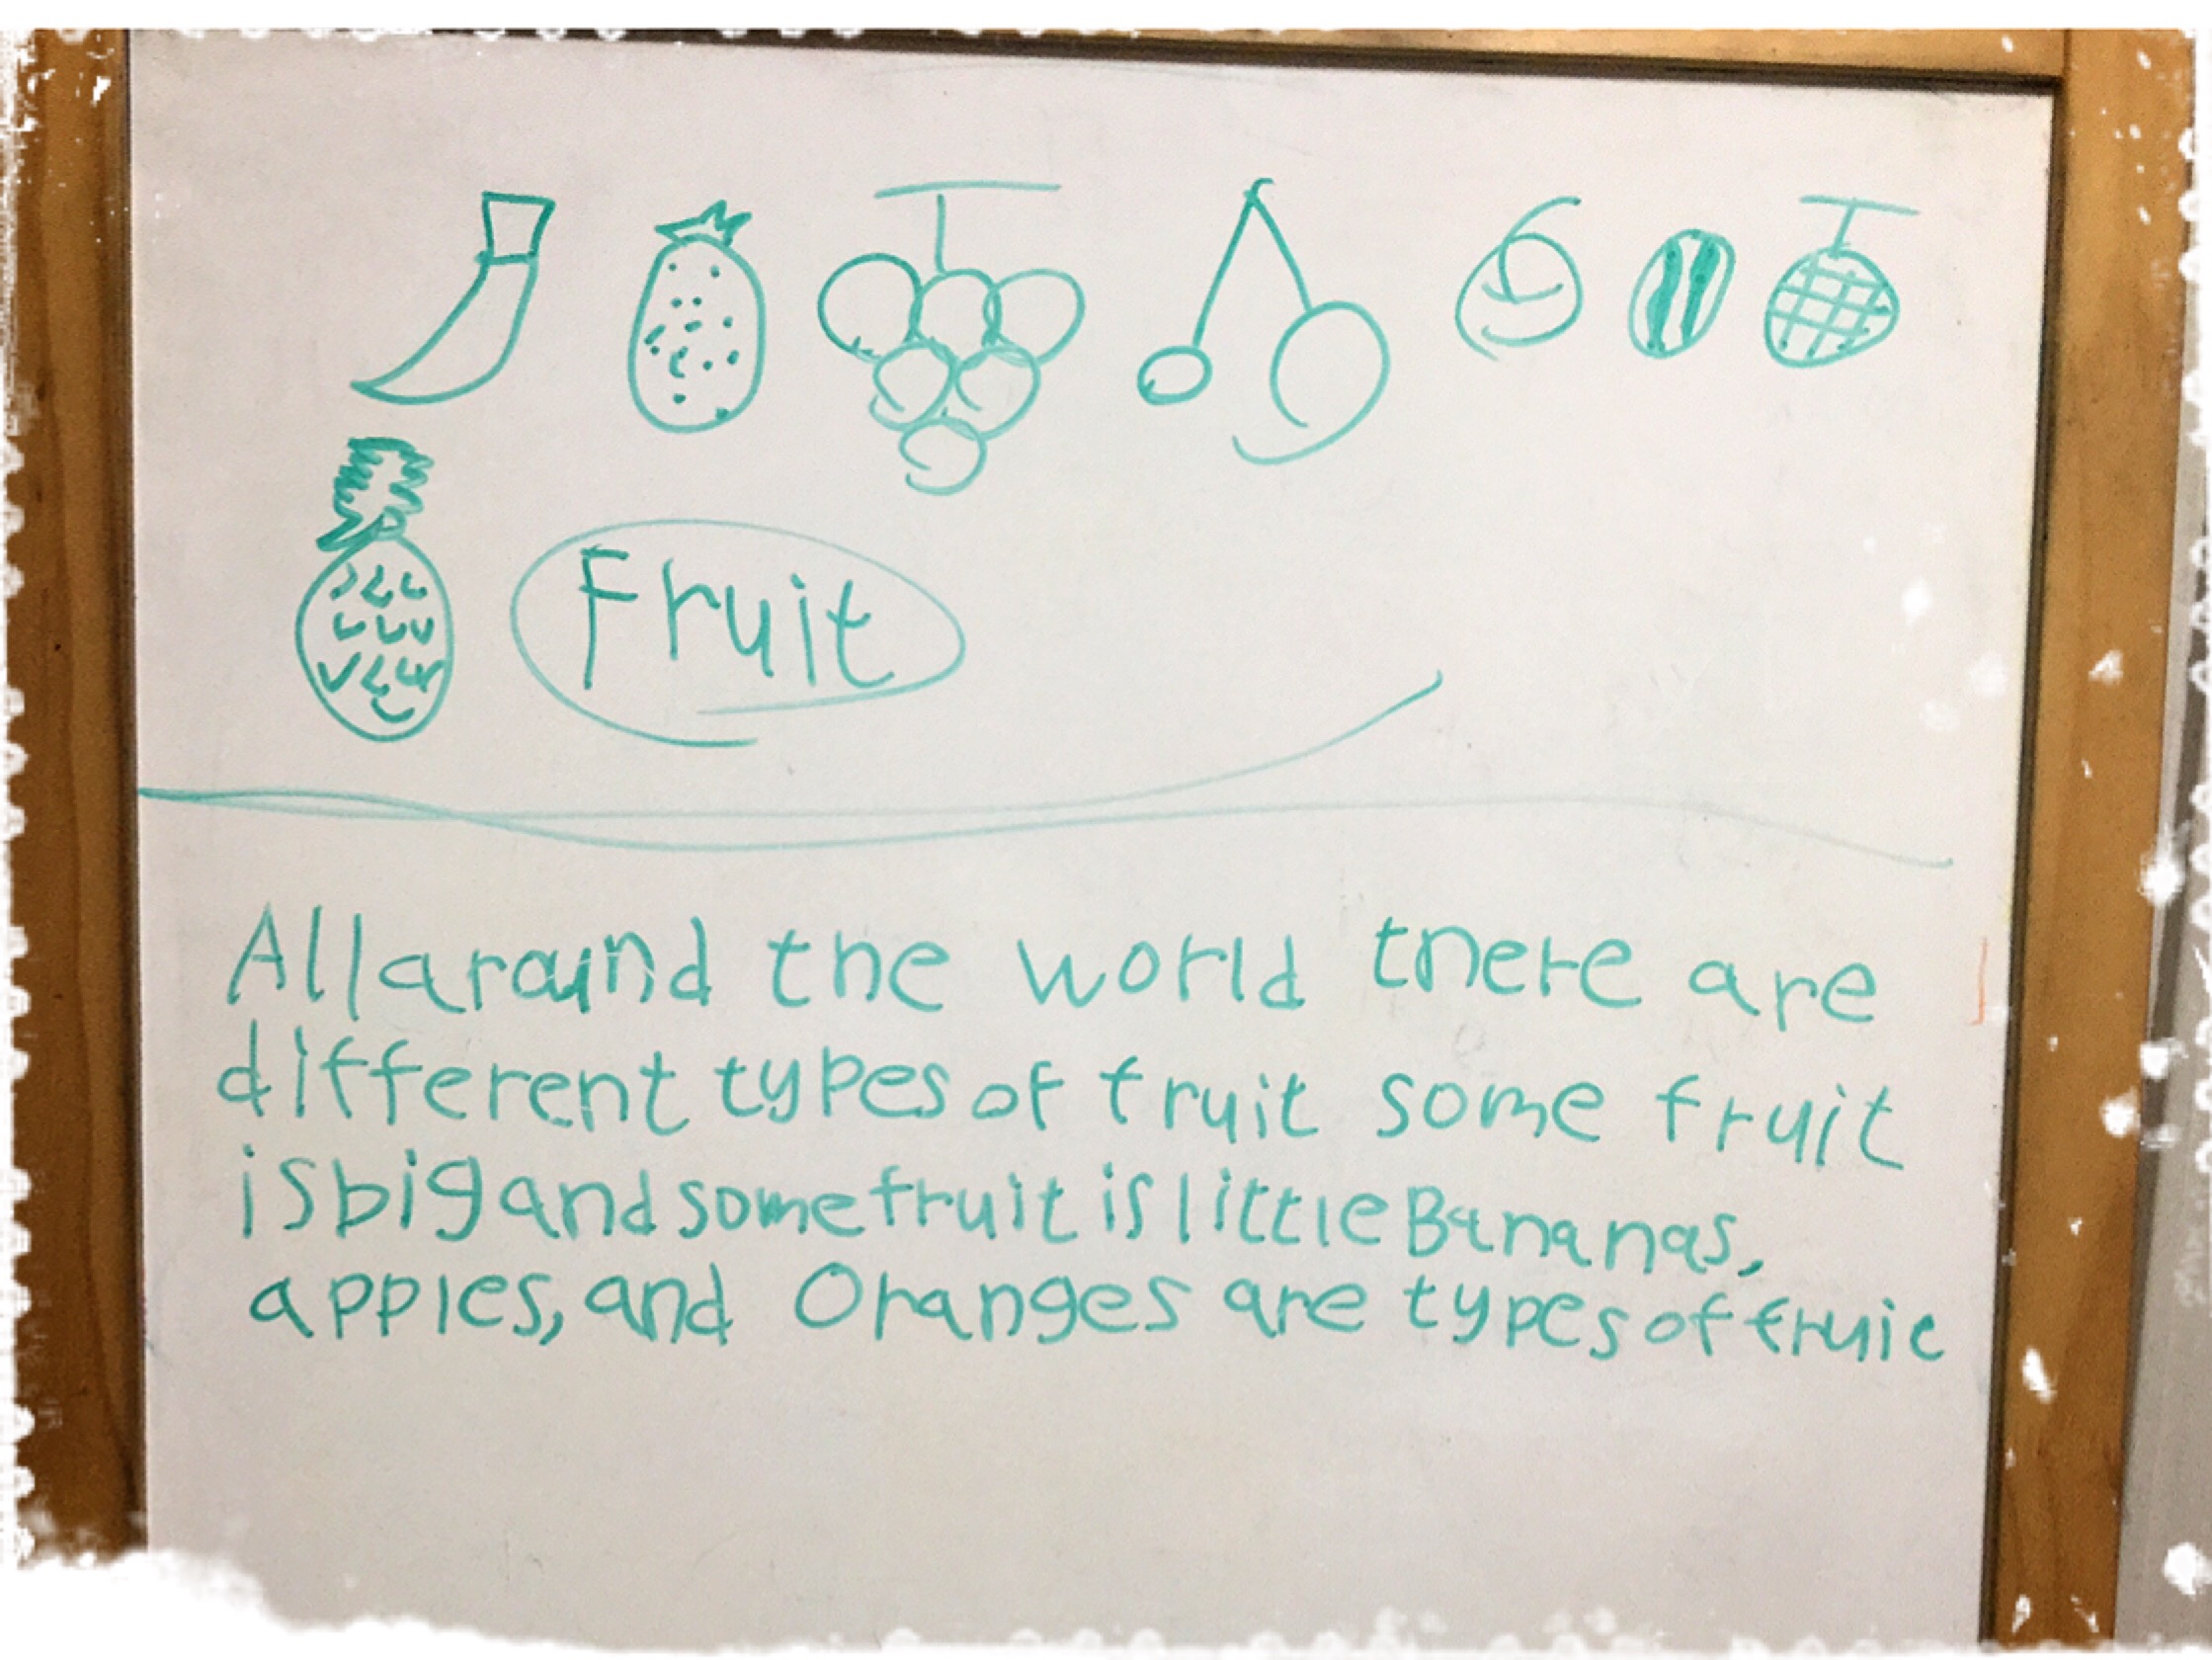 Fruit
All around the world there are
different types of fruit some fruit
is big and some fruit is little Bananas,
apples, and Oranges are types of fruit